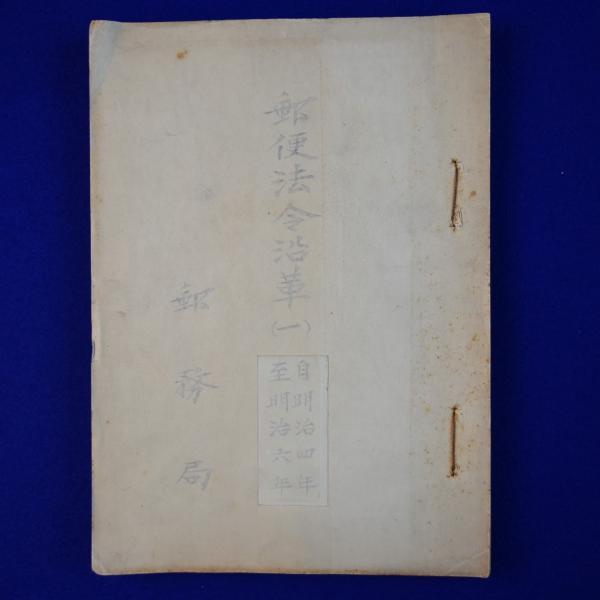 郵便法令沿革(一)
自明治四年
至明治六年
郵務局